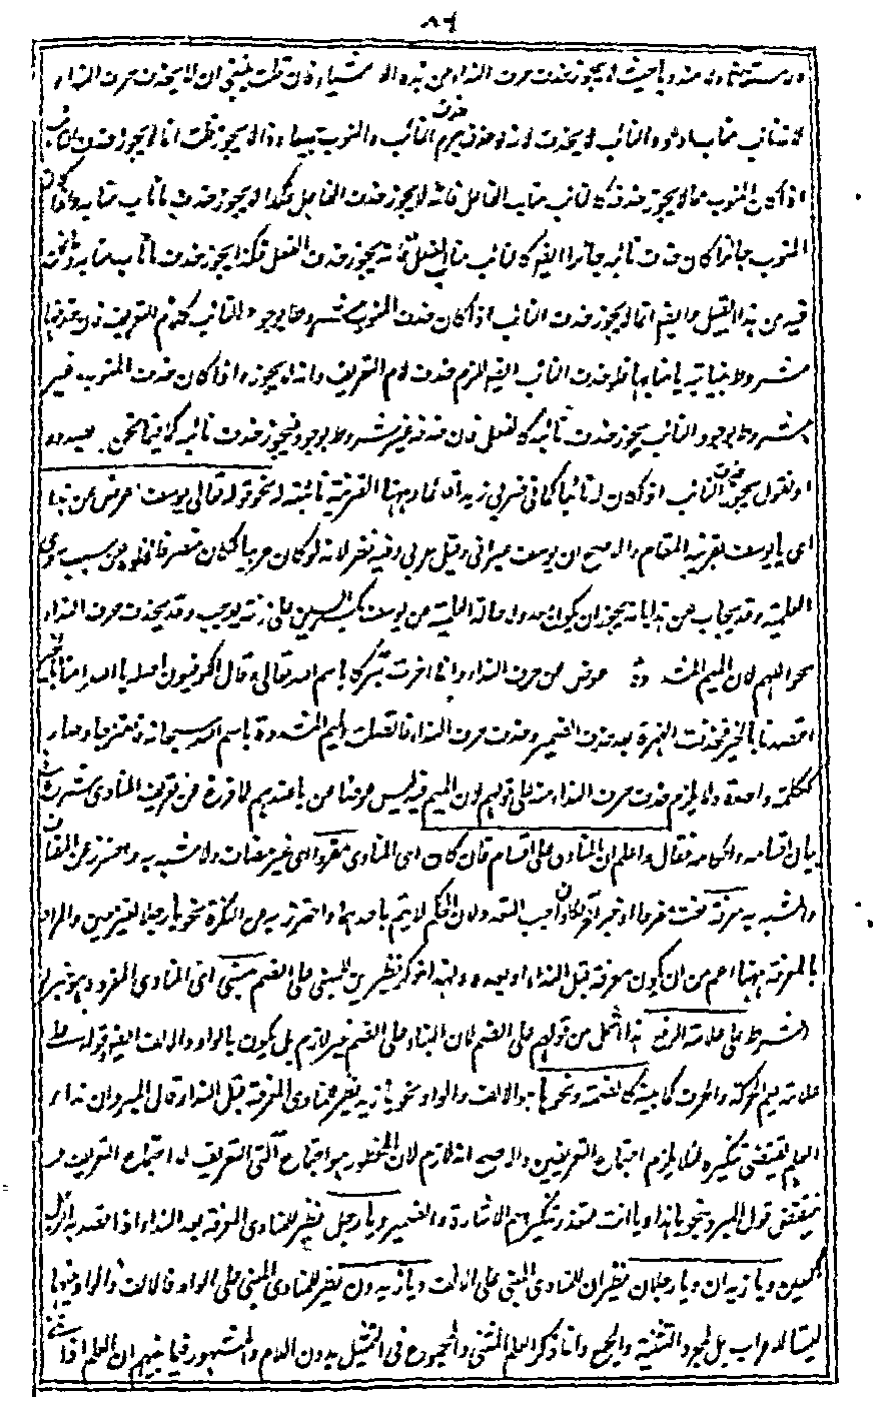 ٨٦
ومستغاثا ومندوبا حيث لا يجوز حذف حرف النداء من هذه الاشياء فان قلت ينبغي ان لا يحذف حرف النداء
لانه نائب مناب ادعو والنائب لا يحذف لانه لو حذف يلزم حذف النائب والمنوب جميعا وذا لا يجوز قلت انما لا يجوز حذف النائب
اذا كان المنوب مما لا يجوز حذفه كالنائب مناب الفاعل فانه لا يجوز حذف الفاعل فكذا لا يجوز حذف نائب منابه واذا كان
المنوب جائزا كان حذف نائبه جائزا ايضا كالنائب مناب الفعل فانه يجوز حذف الفعل فكذا يجوز حذف نائب منابه وما نحن
فيه من هذا القبيل وايضا انما لا يجوز حذف النائب اذا كان حذف المنوب مشروطا بوجود النائب كلام التعريف فان حذفها
مشروط بنيابة يا منابها فلو حذف النائب ايضا لزم حذف لام التعريف وانه لا يجوز واذا كان حذف المنوب غير
مشروط بوجود النائب يجوز حذف نائبه كالفعل فان حذفه غير مشروط بوجوده فيجوز حذف نائبه كما فيما نحن بصدده
او نقول يجوز حذف النائب اذا كان له نائبا كما في ضربي زيدا قائما وههنا القرينة نائبة له نحو قوله تعالى يوسف اعرض عن هذا
اي يا يوسف بقرينة المقام والاصح ان يوسف عبراني وقيل عربي وفيه نظر لانه لو كان عربيا لكان منصرفا لخلوه عن سبب سوى
العلمية وقد يجاب عن هذا بانه يجوز ان يكون معدولا حالة العلمية عن يوسف بكسر السين على زنة يوجب وقد يحذف حرف النداء
نحو اللهم فان الميم المشددة عوض عن حرف النداء وانما اخرت تبركا باسم الله تعالى وقال الكوفيون اصله يا الله امنا اي
اقصدنا بالخير فحذفت الهمزة بعد حذف الضمير وحذف حرف النداء فاتصلت الميم المشددة باسم الله سبحانه فامتزجا وصار
ككلمة واحدة ولا يلزم حذف حرف النداء منه على قولهم لان الميم فيه ليس عوضا عن يا عندهم لما فرغ من تعريف المنادى شرع في
بيان اقسامه واحكامه فقال واعلم ان المنادى على اقسام فان كان اي المنادى مفردا اي غير مضاف ولا مشبه به واحترز عن المضاف
والمشبه به معرفة صفة مفردا او خبر آخر لكان واجب التعدد لان الحكم لا يتم باحدهما واحترز به عن النكرة نحو يا رجلا لغير معين والمراد
بالمعرفة ههنا اعم من ان يكون معرفة قبل النداء او بعده ولهذا ذكر نظيرين للمبني على الضم مبني اي المنادى المفرد وهو خبر
الشرط على علامة الرفع هذا اشمل من قولهم على الضم لان البناء على الضم غير لازم بل يكون بالواو والالف ايضا وقوله
علامة يعم الحركة والحرف كما بينه كالضمة ونحوها هو الالف والواو نحو يا زيد نظير للمنادى المعرفة قبل النداء قال المبرد ان نداء
العلم يقتضي تنكيره لئلا يلزم اجتماع التعريفين والاصح انه لازم لان المحظور هو اجتماع آلتي التعريف لا اجتماع التعريف و
ينتقض قول المبرد بنحو يا هذا ويا انت لتعذر تنكير اسم الاشارة والضمير ويا رجل نظير للمنادى المعرفة بعد النداء اذا قصد به الرجل
المعين ويا زيدان ويا رجلان نظيران للمنادى المبني على الالف ويا زيدون نظير للمنادى المبني على الواو فالالف والواو فيها
ليستا للاعراب بل لمجرد التثنية والجمع وانما ذكر العلم المثنى والمجموع في التمثيل بدون اللام والمشهور فيما بينهم ان العلم اذا